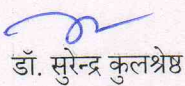 डॉ. सुरेन्द्र कुलश्रेष्ठ